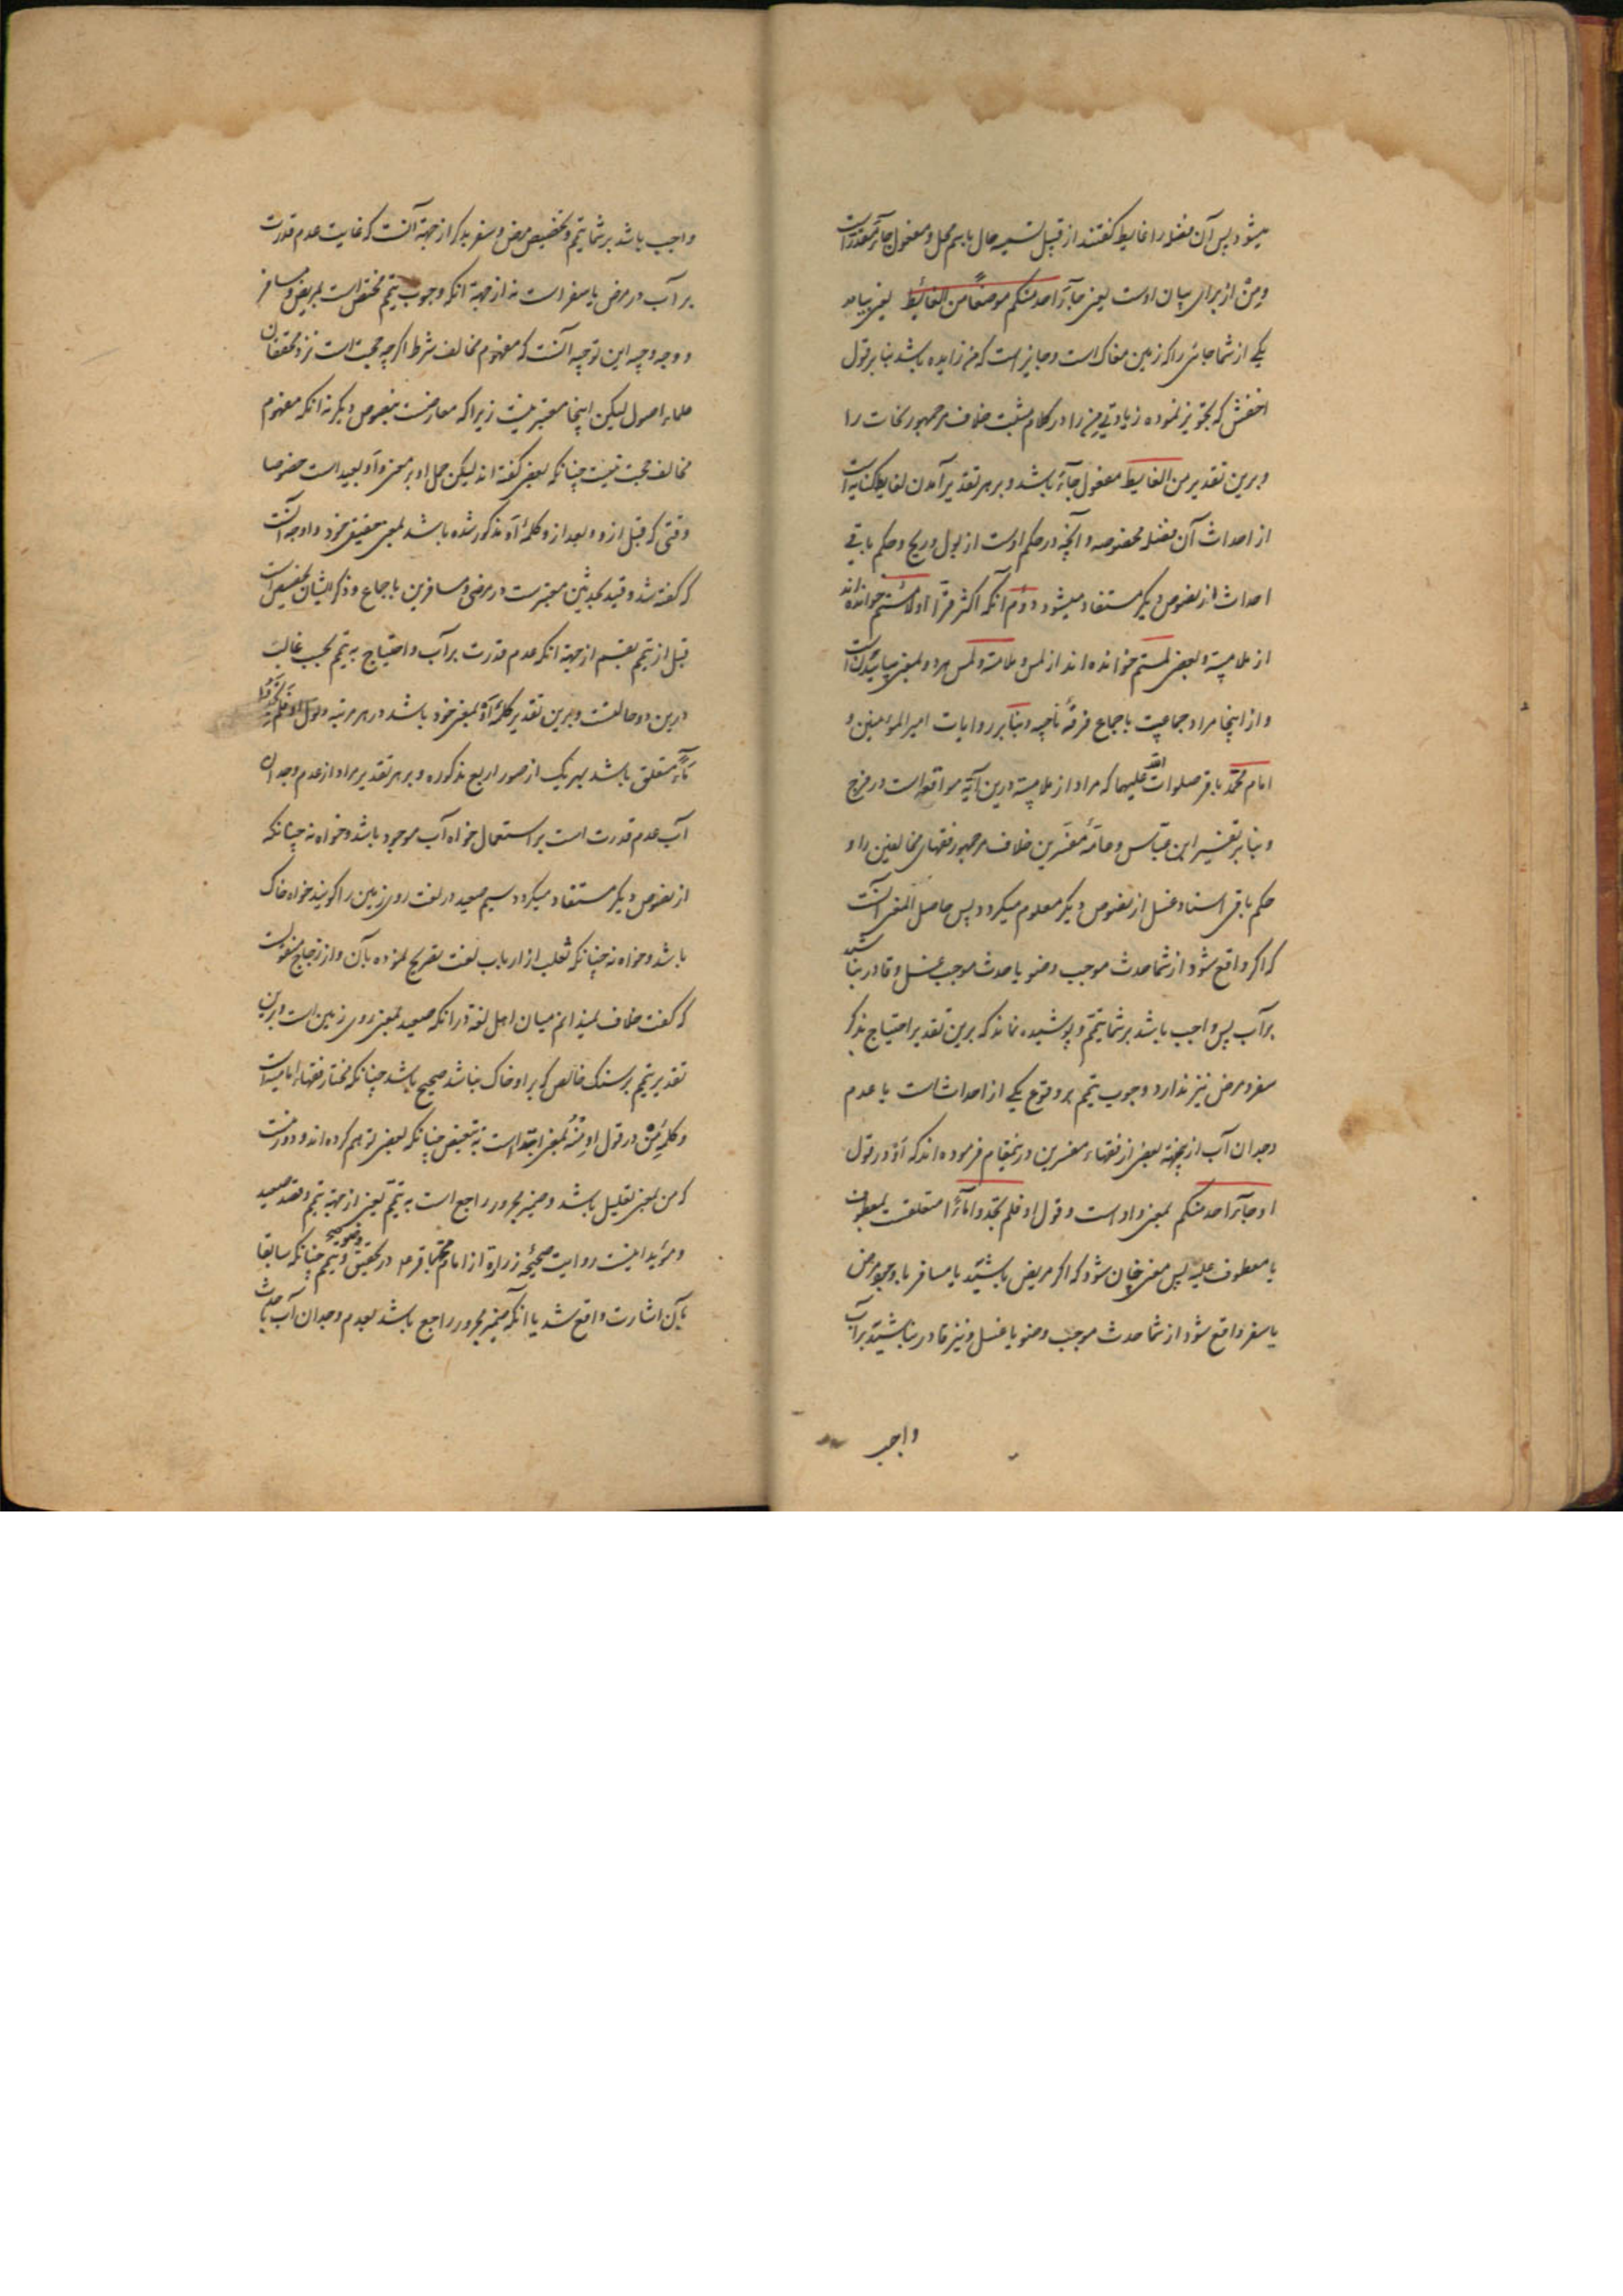 میشود پس آن فضله را غایط گفتند از قبیل تسمیه حال باسم محل و مفعول جاء مقدر است
و من از برای بیان اوست یعنی جاء احد منکم موضعا من الغائط یعنی بیامد
یکی از شما جائی را که زمین مغاک است و جایز است که من زایده باشد بنا بر قول
اخفش که تجویز نموده زیادتی من را در کلام مثبت خلاف مر جمهور نحات را
و برین تقدیر من الغایط مفعول جاء باشد و بر هر تقدیر آمدن لغایط کنایه است
از احداث آن فضله مخصوصه و آنچه در حکم اوست از بول و ریح و حکم باقی
احداث از نصوص دیگر مستفاد میشود دوم آنکه اکثر قرا او لامستم خوانده‌اند
از ملامسه و بعضی لمستم خوانده اند از لمس و ملامسه و لمس هر دو بمعنی
و از اینجا مراد جماعیت باجماع فرقه ناجیه و بنا بر روایات امیر المؤمنین و
امام محمد باقر صلوات الله علیهما که مراد از ملامسه درین آیة مواقعه است در فرج
و بنا بر تفسیر ابن عباس و عامه مفسرین خلاف مر جمهور فقهای مخالفین را و
حکم باقی اسناد غسل از نصوص دیگر معلوم میکردد پس حاصل المعنی آنست
که اگر واقع شود از شما حدث موجب وضو یا حدث موجب غسل و قادر نباشید
بر آب پس واجب باشد بر شما تیمم و پوشیده نماند که برین تقدیر احتیاج بذکر
سفر و مرض نیز ندارد وجوب تیمم بر وقوع یکی از احداثست با عدم
وجدان آب ازینجهة بعضی از فقهاء مفسرین درینمقام فرموده اند که او در قول
او جاء احد منکم بمعنی واو است و قول او فلم تجدوا ماء متعلقست بمعطوف
با معطوف علیه پس معنی چنان شود که اگر مریض باشید یا مسافر با وجود مرض
یا سفر واقع شود از شما حدث موجب وضو یا غسل و نیز قادر نباشید بر آب
واجب
واجب باشد بر شما تیمم و تخصیص مرض و سفر بذکر از جهة آنست که غایت عدم قدرت
بر آب در مرض یا سفر است نه از جهة آنکه وجوب تیمم مختص است بمریض و مسافر
و وجه وجیه این توجیه آنست که مفهوم مخالف شرط اگر چه حجت است نزد محققان
علماء اصول لیکن اینجا معتبر نیست زیرا که معارضست بنصوص دیگر نه آنکه مفهوم
مخالف حجت نیست چنانکه بعضی گفته اند لیکن حمل او بر معنی واو بعید است خصوصا
وقتی که قبل ازو و بعد ازو کلمه او مذکور شده باشد بمعنی حقیقی خود و اوجه آنست
که گفته شد و قید محدثین معتبرست در مرضی و مسافرین باجماع و ذکر ایشان
قبل از تیمم از جهة آنکه عدم قدرت بر آب و احتیاج به تیمم بحسب غالب
درین دو حالتست و برین تقدیر کلمه او بمعنی خود باشد در هر مرتبه و قول او فلم تجدوا
ماء متعلق باشد بهر یک از صور اربع مذکوره و بر هر تقدیر مراد از عدم وجدان
آب عدم قدرت است بر استعمال خواه آب موجود باشد و خواه نه چنانکه
از نصوص دیگر مستفاد میکردد سیم صعید در لغت روی زمین را گویند خواه خاک
باشد و خواه نه چنانکه ثعلب از ارباب لغت تصریح نموده بآن و از زجاج منقولست
که گفت خلاف نمیدانم میان اهل لغة در آنکه صعید بمعنی روی زمین است و برین
تقدیر تیمم بر سنک خالص که بر او خاک نباشد صحیح باشد چنانکه مختار فقهاء امامیه است
و کلمه من در قول او منه بمعنی ابتداست نه تبعیض چنانکه بعضی توهم کرده اند و دور نیست
که من بمعنی تعلیل باشد و ضمیر مجرور راجع است به تیمم یعنی از جهة تیمم و قصد صعید
و مؤید اینست روایت صحیحه زراره از امام محمد باقر ع در تحقیق وضو و تیمم چنانکه سابقا
بآن اشارت واقع شد یا آنکه ضمیر مجرور راجع باشد بعدم وجدان آب یا حدث